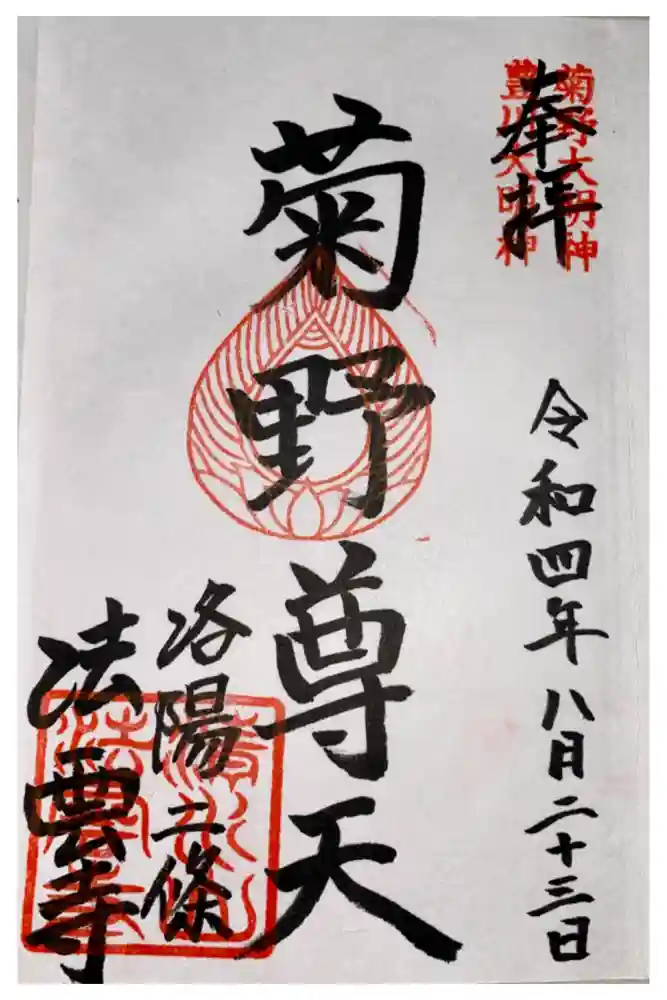 菊野大明神
豊川大明神
奉拝
令和四年八月二十三日
菊野尊天
洛陽二條
法雲寺
清水山
法雲寺